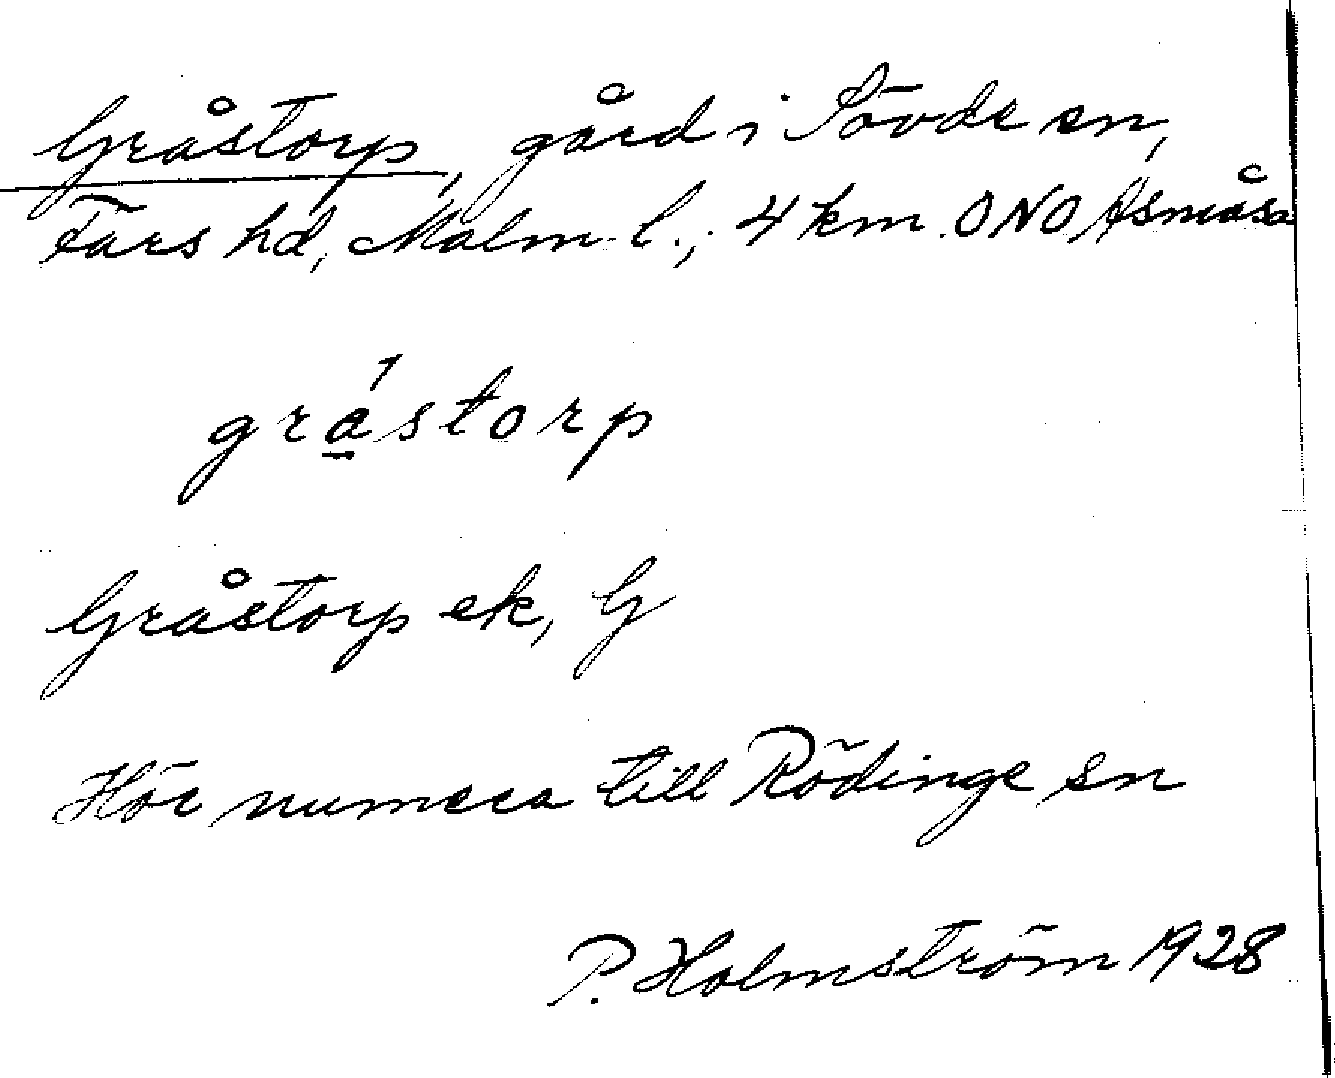 Gråstorp, gård i Sövde sn,
Färs hd, Malm. l., 4 km ONO Åsmåsa
gra̱´storp
Gråstorp ek, G
Hör numera till Rödinge sn
P. Holmström 1928